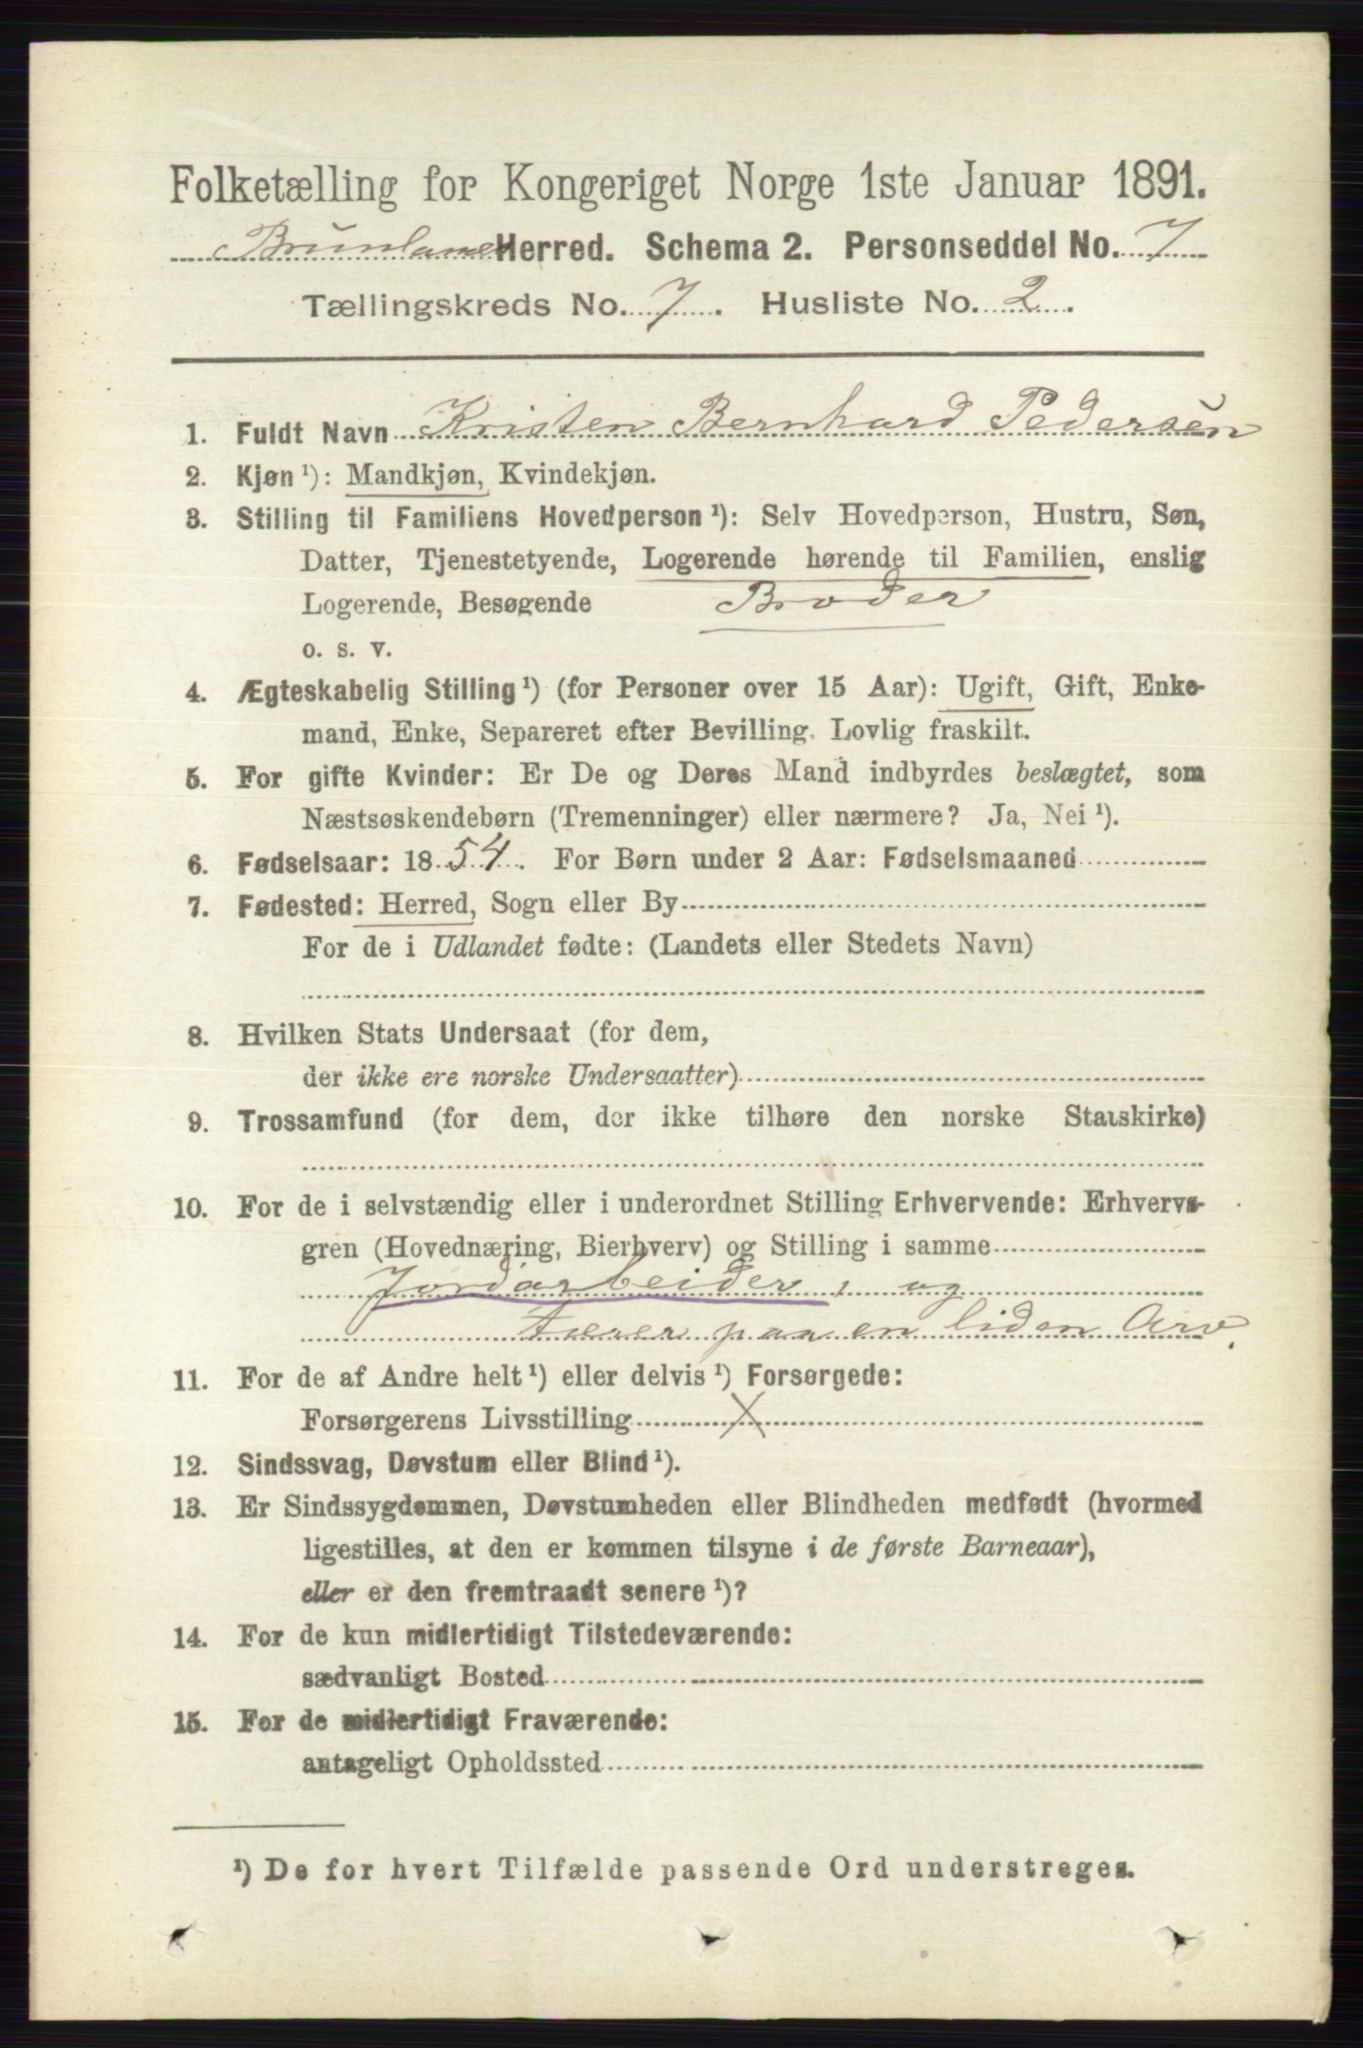 Folketælling for Kongeriget Norge 1ste Januar 1891.
Brunlanes Herred. Schema 2. Personseddel No. 7
Tællingskreds No. 7. Husliste No. 2.
1. Fuldt Navn Kristen Bernhard Pedersen
2. Kjøn¹): Mandkjøn, Kvindekjøn.
3. Stilling til Familiens Hovedperson¹): Selv Hovedperson, Hustru, Søn,
Datter, Tjenestetyende, Logerende hørende til Familien, enslig
Logerende, Besøgende Broder
o. s. v.
4. Ægteskabelig Stilling¹) (for Personer over 15 Aar): Ugift, Gift, Enke-
mand, Enke, Separeret efter Bevilling. Lovlig fraskilt.
5. For gifte Kvinder: Er De og Deres Mand indbyrdes beslægtet, som
Næstsøskendebørn (Tremenninger) eller nærmere? Ja, Nei¹).
6. Fødselsaar: 1854. For Børn under 2 Aar: Fødselsmaaned
7. Fødested: Herred, Sogn eller By
For de i Udlandet fødte: (Landets eller Stedets Navn)
8. Hvilken Stats Undersaat (for dem,
der ikke ere norske Undersaatter)
9. Trossamfund (for dem, der ikke tilhøre den norske Statskirke)
10. For de i selvstændig eller i underordnet Stilling Erhvervende: Erhvervs-
gren (Hovednæring, Bierhverv) og Stilling i samme
Jordarbeider, og
tærer paa en liden Arv.
11. For de af Andre helt¹) eller delvis¹) Forsørgede:
Forsørgerens Livsstilling X
12. Sindssvag, Døvstum eller Blind¹).
13. Er Sindssygdommen, Døvstumheden eller Blindheden medfødt (hvormed
ligestilles, at den er kommen tilsyne i de første Barneaar),
eller er den fremtraadt senere¹)?
14. For de kun midlertidigt Tilstedeværende:
sædvanligt Bosted
15. For de midlertidigt Fraværende:
antageligt Opholdssted
¹) De for hvert Tilfælde passende Ord understreges.